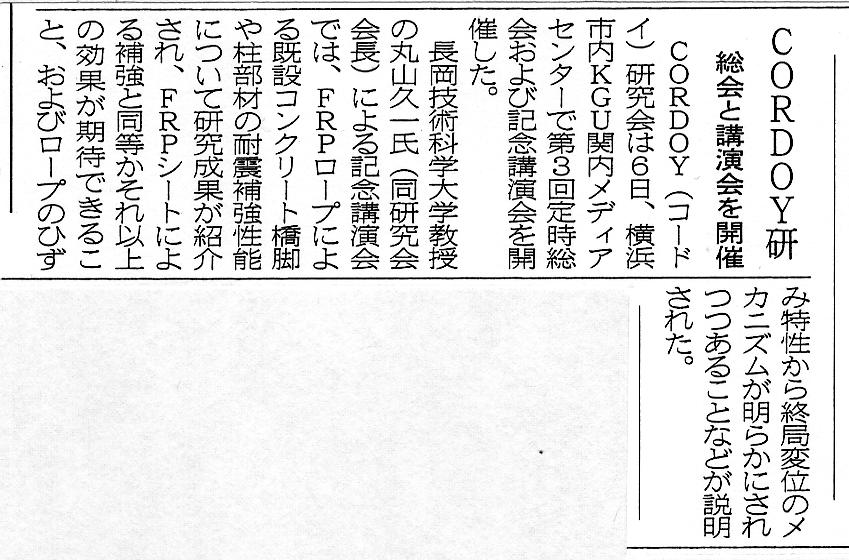 CORDOY研
総会と講演会を開催
CORDOY（コード
イ）研究会は6日、横浜
市内KGU関内メディア
センターで第3回定時総
会および記念講演会を開
催した。
長岡技術科学大学教授
の丸山久一氏（同研究会
会長）による記念講演会
では、FRPロープによ
る既設コンクリート橋脚
や柱部材の耐震補強性能
について研究成果が紹介
され、FRPシートによ
る補強と同等かそれ以上
の効果が期待できるこ
と、およびロープのひず
み特性から終局変位のメ
カニズムが明らかにされ
つつあることなどが説明
された。